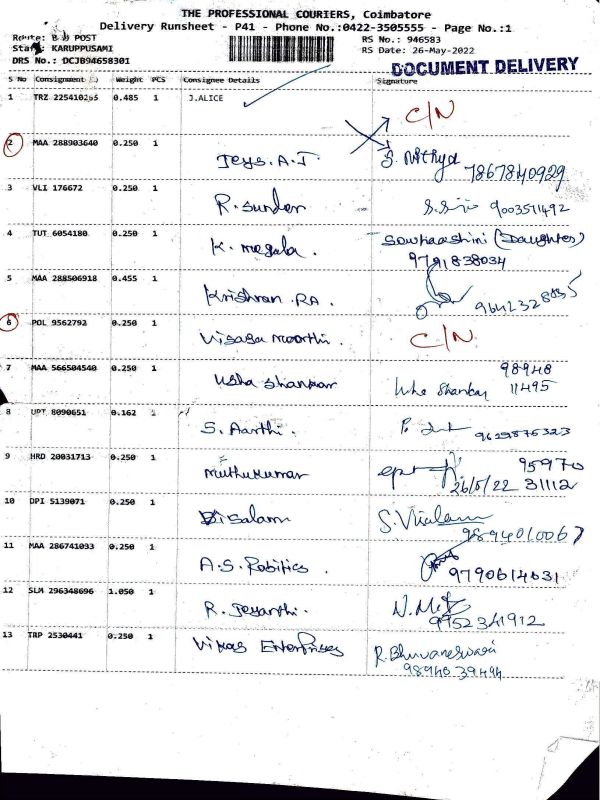 THE PROFESSIONAL COURIERS, Coimbatore
Delivery Runsheet - P41 - Phone No.:0422-3505555 - Page No.:1
Route: B POST
RS No.: 946583
Staff: KARUPPUSAMI
RS Date: 26-May-2022
DRS No.: DCJB94658301
DOCUMENT DELIVERY
S No Consignment Weight PCS Consignee Details Signature
1 TRZ 0.485 1 J.ALICE C/N
2 MAA 288903640 0.250 1 Jeys.A.J S. Nithya 7867840929
3 VLI 176672 0.250 1 R. Sunder 9003511492
4 TUT 6054180 0.250 1 K. megala. Sowbaashini (Daughter)
9791838034
5 MAA 288506918 0.455 1 Krishnan .RA.
6 POL 9562792 0.250 1 C/N
7 MAA 566504540 0.250 1 Usha Shankar 98948
11495
8 UPT 8090651 0.162 1 S. Aarthi. 9629876323
9 HRD 20031713 0.250 1 Muthukumar 95970
26/5/22 31112
10 DPI 5139071 0.250 1 Visalam S. Visalam
9894010067
11 MAA 286741033 0.250 1 A.S. Robitics. 9790614631
12 SLM 296348696 1.050 1 R. Jeyanthi.
9952341912
13 TRP 2530441 0.250 1 Vikas Enterprises R. Bhuvaneswari
9894039494